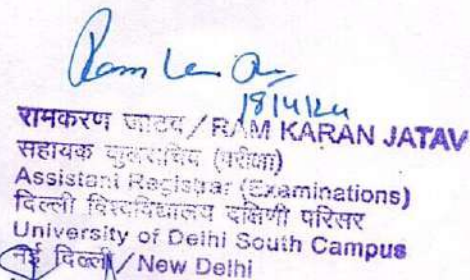 Ram
18/4/24
रामकरण जाटव / RAM KARAN JATAV
सहायक कुलसचिव (परीक्षा)
Assistant Registrar (Examinations)
दिल्ली विश्वविद्यालय दक्षिणी परिसर
University of Delhi South Campus
नई दिल्ली / New Delhi